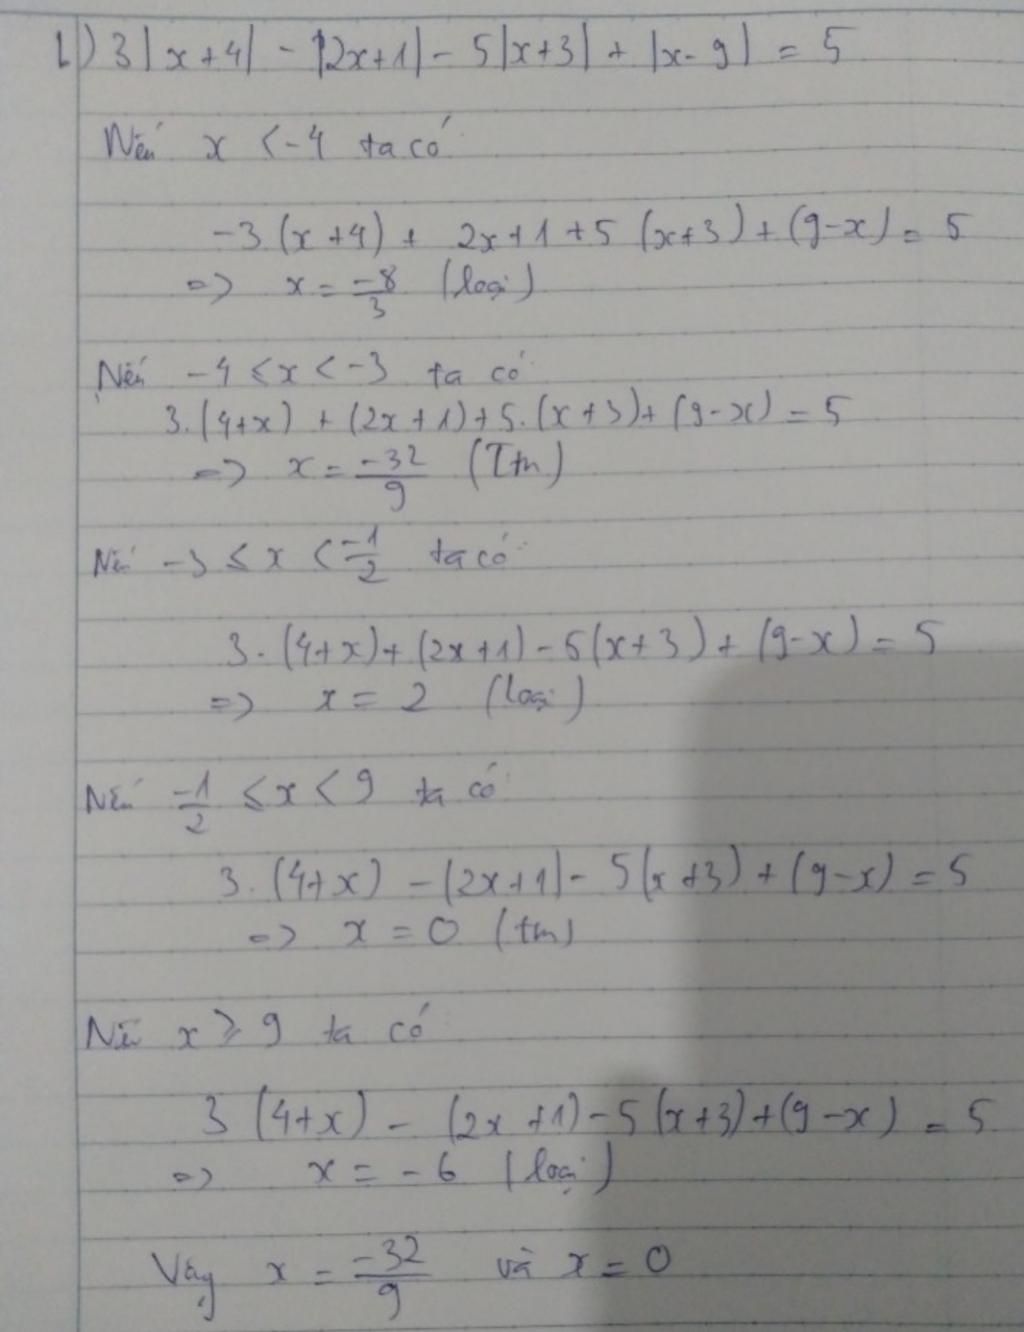 b) 3|x+4| - |2x+1| - 5|x+3| + |x-9| = 5
Nếu x < -4 ta có
-3.(x+4) + 2x+1+5(x+3)+(9-x) = 5
=> x = -8/3 (loại)
Nếu -4 ≤ x < -3 ta có
3.(4+x) + (2x+1)+5.(x+3)+(9-x) = 5
=> x = -32/9 (Tm)
Nếu -3 ≤ x < -1/2 ta có
3.(4+x)+(2x+1)-5(x+3)+(9-x) = 5
=> x = 2 (loại)
Nếu -1/2 ≤ x < 9 ta có
3.(4+x) - (2x+1) - 5(x+3)+(9-x) = 5
=> x = 0 (tm)
Nếu x ≥ 9 ta có
3(4+x) - (2x+1)-5(x+3)+(9-x) = 5
=> x = -6 (loại)
Vậy x = -32/9 và x = 0